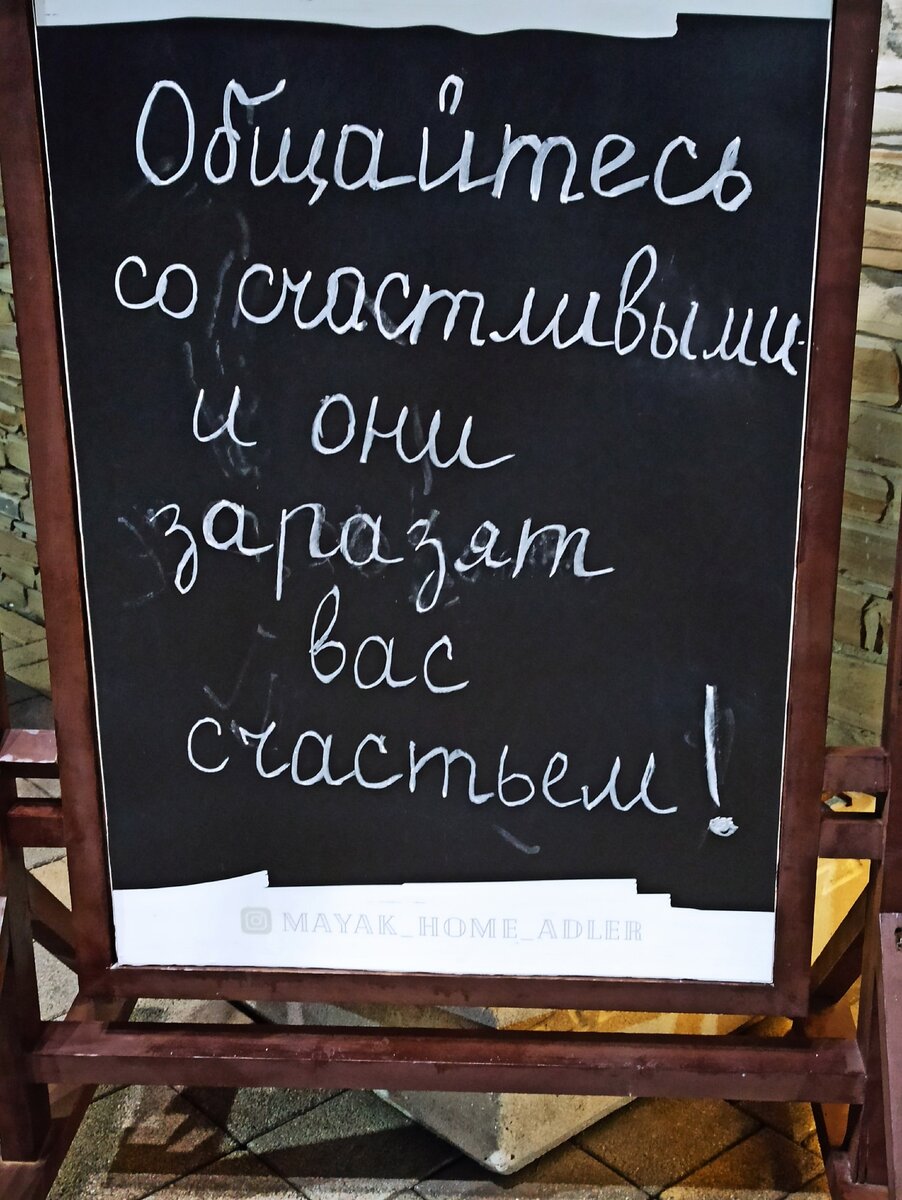 Общайтесь
со счастливыми
и они
заразят
вас
счастьем!
MAYAK_HOME_ADLER